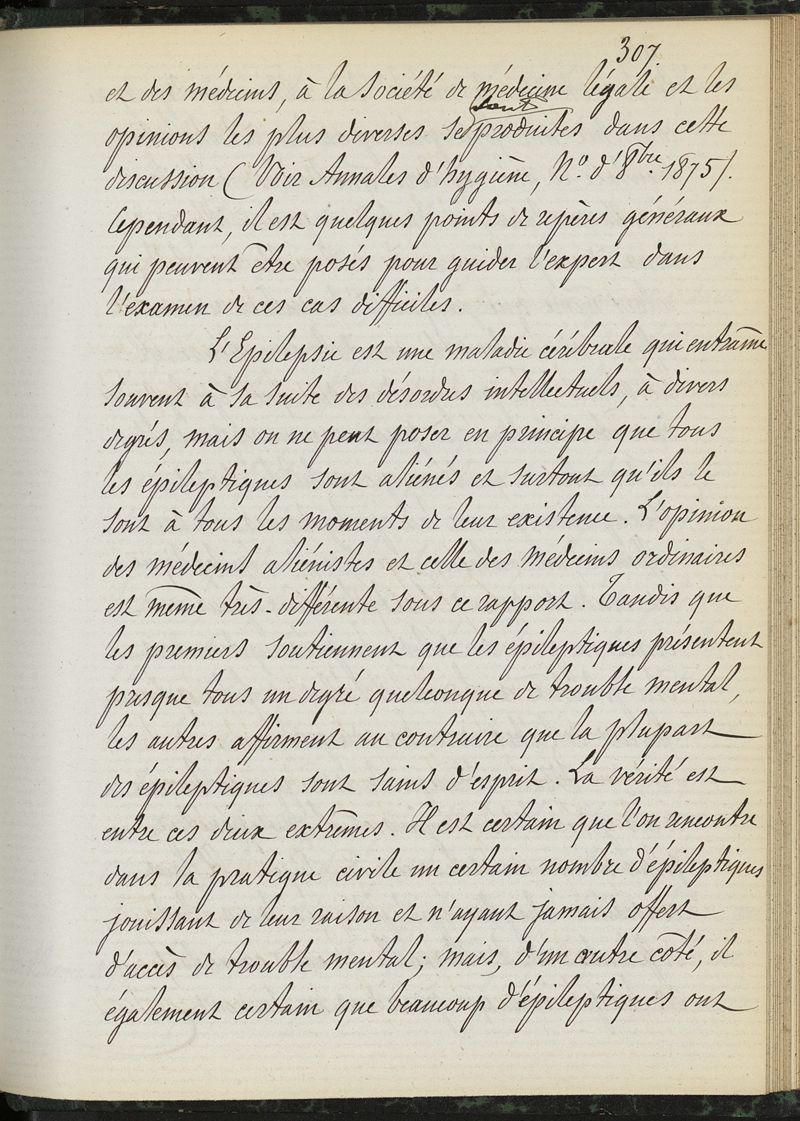 307.
et des médecins, à la Société de médecine légale et les
sont
opinions les plus diverses se produites dans cette
discussion (Voir Annales d'hygiène, N.° d'8bre 1875).
Cependant, il est quelques points de repères généraux
qui peuvent être posés pour guider l'expert dans
l'examen de ces cas difficiles.
L'Epilepsie est une maladie cérébrale qui entraîne
souvent à sa suite des désordres intellectuels, à divers
degrés, mais on ne peut poser en principe que tous
les épileptiques sont aliénés et surtout qu'ils le
sont à tous les moments de leur existence. L'opinion
des médecins aliénistes et celle des médecins ordinaires
est même très-différente sous ce rapport. Tandis que
les premiers soutiennent que les épileptiques présentent
presque tous un degré quelconque de trouble mental,
les autres affirment au contraire que la plupart
des épileptiques sont sains d'esprit. La vérité est
entre ces deux extrêmes. Il est certain que l'on rencontre
dans la pratique civile un certain nombre d'épileptiques
jouissant de leur raison et n'ayant jamais offert
d'accès de trouble mental; mais, d'un autre côté, il
également certain que beaucoup d'épileptiques ont